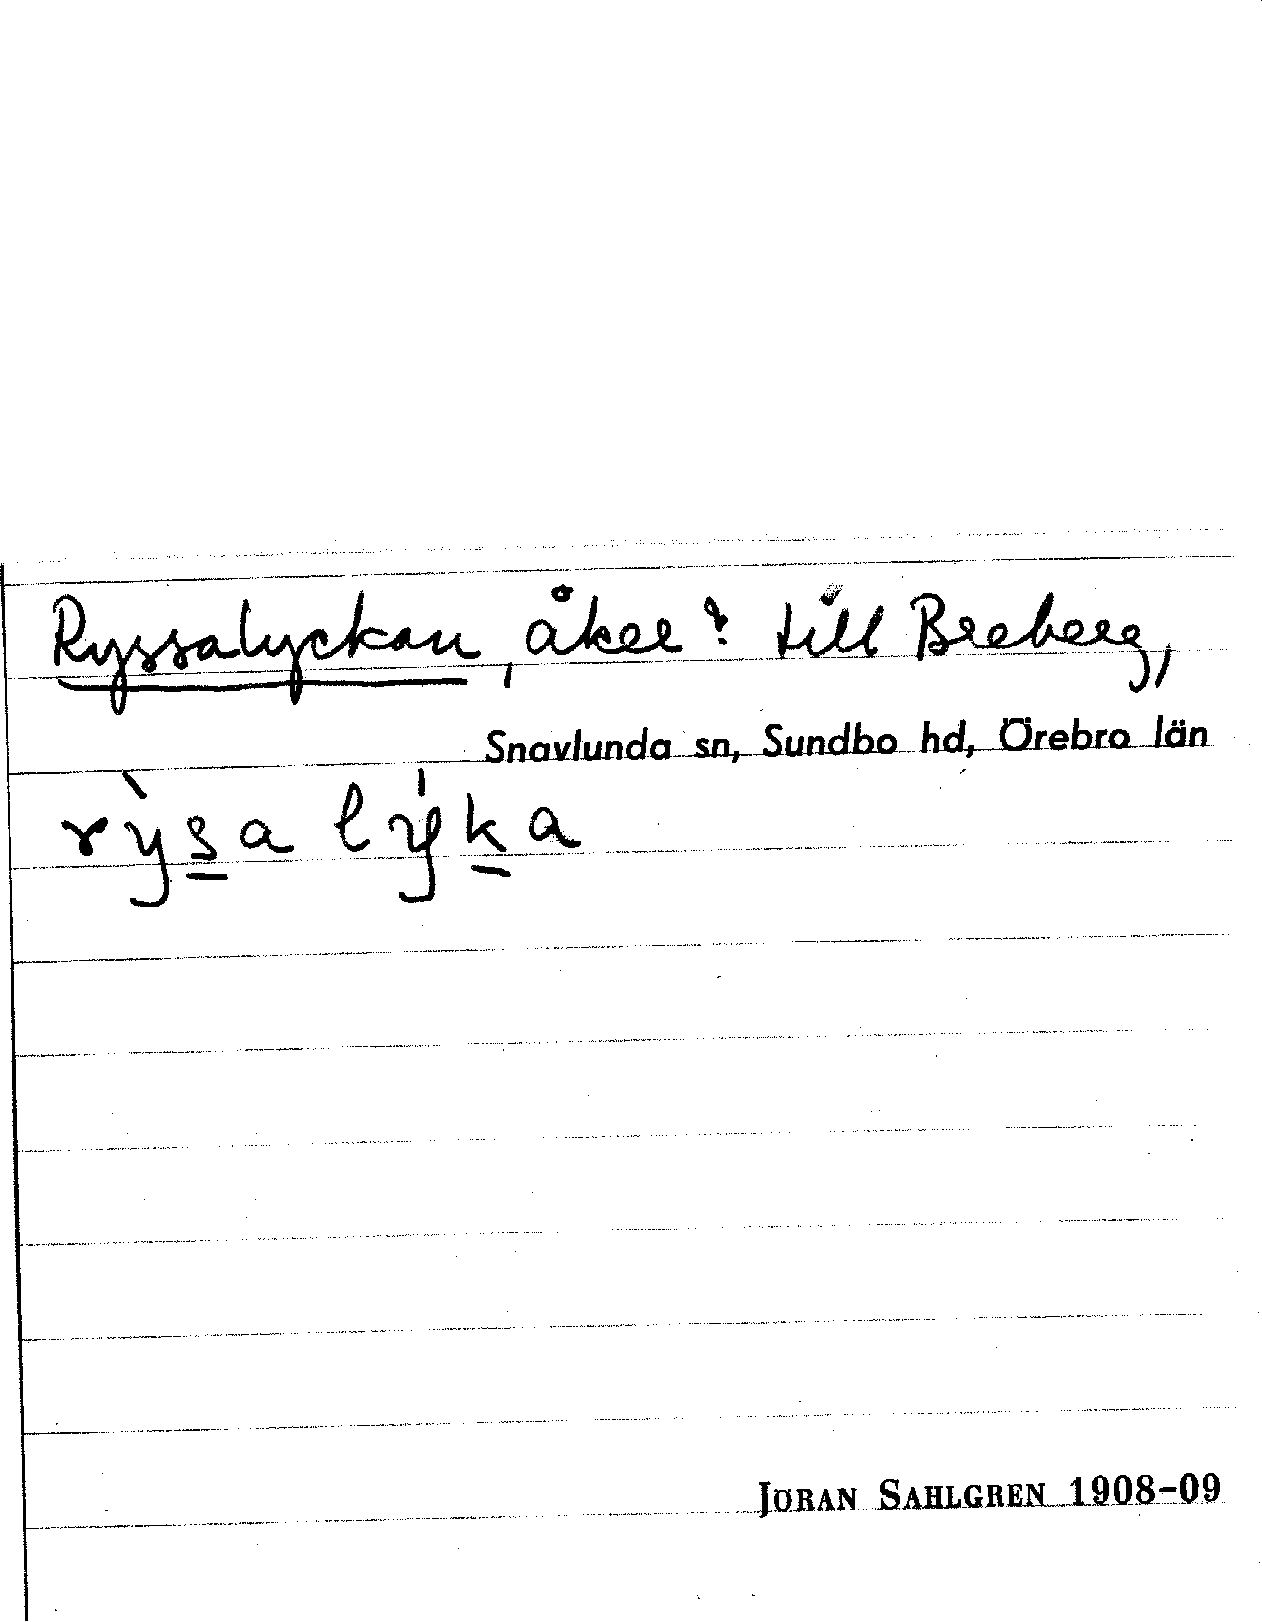 Ryssalyckan, åker? till Breberg,
Snavlunda sn, Sundbo hd, Örebro län
rỳs̠a lýk̠a
JÖRAN SAHLGREN 1908-09